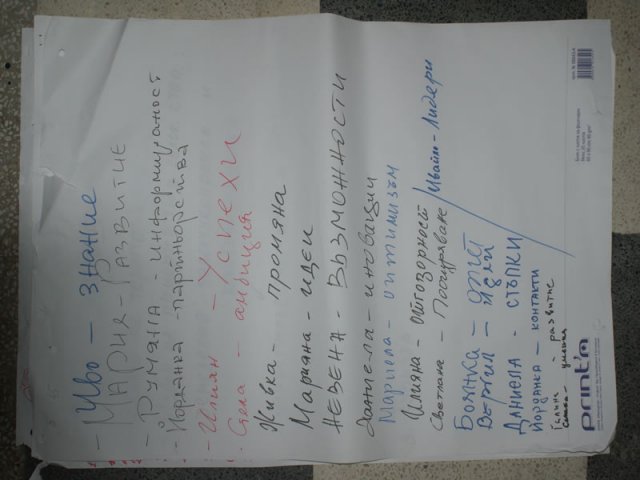 - Иво - знание
- Мария - Развитие
- Румяна - информираност
- Йорданка - партньорства
- Илиян - Успехи
- Села - амбиция
Живка - промяна
Мариана - идеи
Невена - Възможности
Даниела - иновации
Мариела - оптимизъм
Илияна - Отговорност
Светлана - Пооцряване / Ивайло - Лидери
Боянка - опит
Вергил - идеи
Даниела - стъпки
Йорданка - контакти
Галин - развитие
умения
print'n